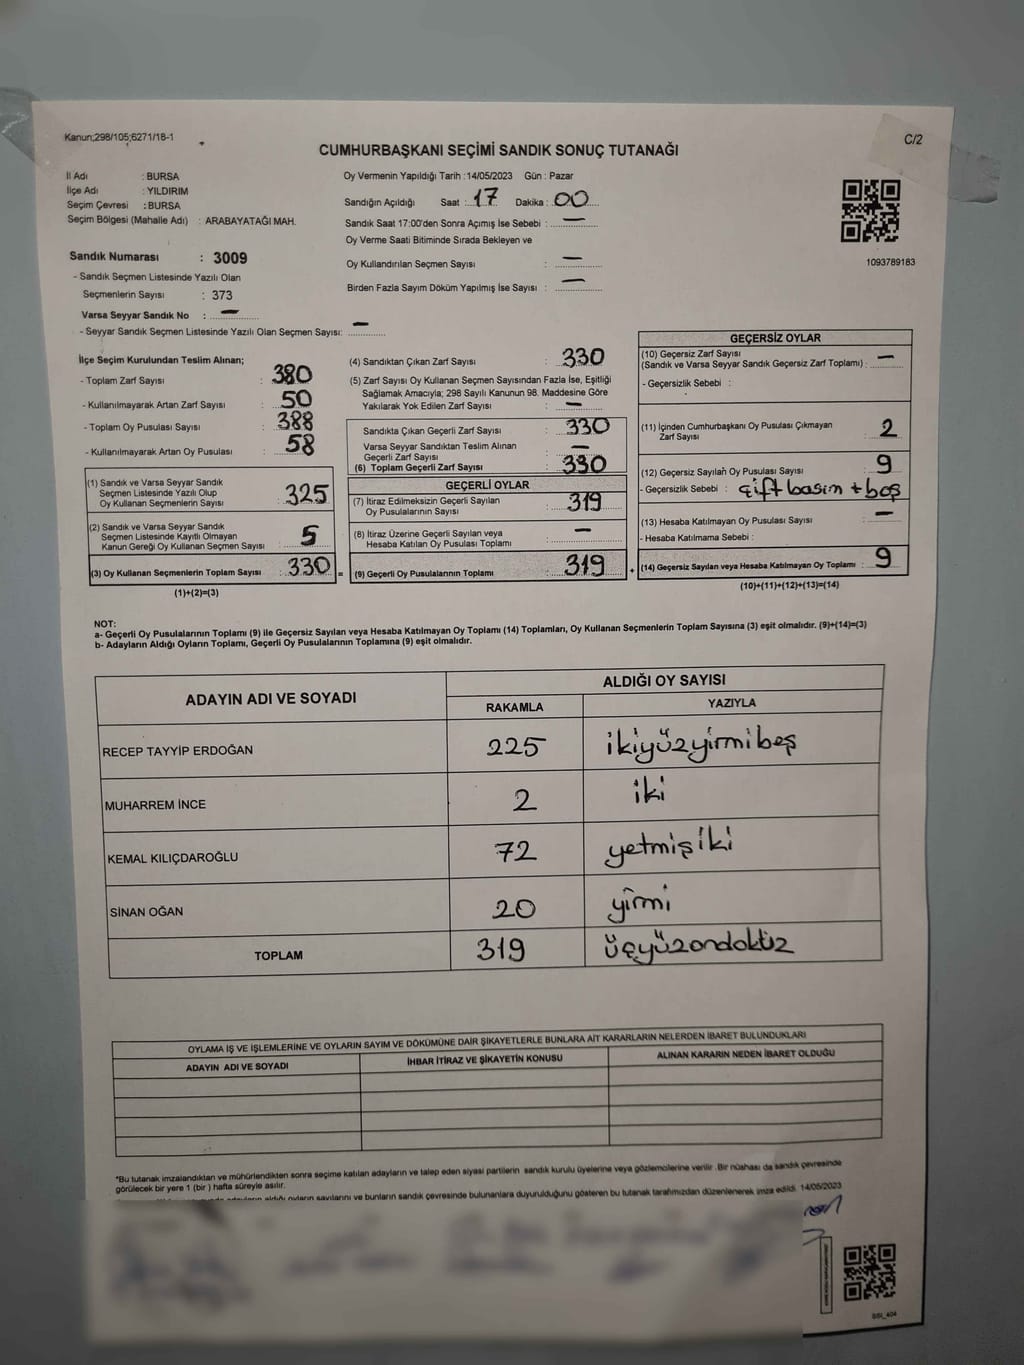 Kanun;298/105;6271/18-1
C/2
CUMHURBAŞKANI SEÇİMİ SANDIK SONUÇ TUTANAĞI
İl Adı : BURSA
İlçe Adı : YILDIRIM
Seçim Çevresi : BURSA
Seçim Bölgesi (Mahalle Adı) : ARABAYATAĞI MAH.
Sandık Numarası : 3009
- Sandık Seçmen Listesinde Yazılı Olan
Seçmenlerin Sayısı : 373
Varsa Seyyar Sandık No : —
- Seyyar Sandık Seçmen Listesinde Yazılı Olan Seçmen Sayısı: —
Oy Vermenin Yapıldığı Tarih :14/05/2023 Gün : Pazar
Sandığın Açıldığı Saat : 17 Dakika : 00
Sandık Saat 17:00'den Sonra Açımış İse Sebebi : —
Oy Verme Saati Bitiminde Sırada Bekleyen ve
Oy Kullandırılan Seçmen Sayısı : —
Birden Fazla Sayım Döküm Yapılmış İse Sayısı : —
1093789183
İlçe Seçim Kurulundan Teslim Alınan;
- Toplam Zarf Sayısı : 380
- Kullanılmayarak Artan Zarf Sayısı : 50
- Toplam Oy Pusulası Sayısı : 388
- Kullanılmayarak Artan Oy Pusulası : 58
(1) Sandık ve Varsa Seyyar Sandık
Seçmen Listesinde Yazılı Olup
Oy Kullanan Seçmenlerin Sayısı : 325
(2) Sandık ve Varsa Seyyar Sandık
Seçmen Listesinde Kayıtlı Olmayan
Kanun Gereği Oy Kullanan Seçmen Sayısı : 5
(3) Oy Kullanan Seçmenlerin Toplam Sayısı : 330
(1)+(2)=(3)
(4) Sandıktan Çıkan Zarf Sayısı : 330
(5) Zarf Sayısı Oy Kullanan Seçmen Sayısından Fazla İse, Eşitliği
Sağlamak Amacıyla; 298 Sayılı Kanunun 98. Maddesine Göre
Yakılarak Yok Edilen Zarf Sayısı : —
Sandıkta Çıkan Geçerli Zarf Sayısı : 330
Varsa Seyyar Sandıktan Teslim Alınan
Geçerli Zarf Sayısı : —
(6) Toplam Geçerli Zarf Sayısı : 330
GEÇERLİ OYLAR
(7) İtiraz Edilmeksizin Geçerli Sayılan
Oy Pusulalarının Sayısı : 319
(8) İtiraz Üzerine Geçerli Sayılan veya
Hesaba Katılan Oy Pusulası Toplamı : —
= (9) Geçerli Oy Pusulalarının Toplamı : 319 +
GEÇERSİZ OYLAR
(10) Geçersiz Zarf Sayısı
(Sandık ve Varsa Seyyar Sandık Geçersiz Zarf Toplamı) : —
- Geçersizlik Sebebi :
(11) İçinden Cumhurbaşkanı Oy Pusulası Çıkmayan
Zarf Sayısı : 2
(12) Geçersiz Sayılan Oy Pusulası Sayısı : 9
- Geçersizlik Sebebi : çift basım + boş
(13) Hesaba Katılmayan Oy Pusulası Sayısı : —
- Hesaba Katılmama Sebebi :
(14) Geçersiz Sayılan veya Hesaba Katılmayan Oy Toplamı : 9
(10)+(11)+(12)+(13)=(14)
NOT:
a- Geçerli Oy Pusulalarının Toplamı (9) ile Geçersiz Sayılan veya Hesaba Katılmayan Oy Toplamı (14) Toplamları, Oy Kullanan Seçmenlerin Toplam Sayısına (3) eşit olmalıdır. (9)+(14)=(3)
b- Adayların Aldığı Oyların Toplamı, Geçerli Oy Pusulalarının Toplamına (9) eşit olmalıdır.
ADAYIN ADI VE SOYADI ALDIĞI OY SAYISI
RAKAMLA YAZIYLA
RECEP TAYYİP ERDOĞAN 225 ikiyüzyirmibeş
MUHARREM İNCE 2 iki
KEMAL KILIÇDAROĞLU 72 yetmişiki
SİNAN OĞAN 20 yirmi
TOPLAM 319 üçyüzondokuz
OYLAMA İŞ VE İŞLEMLERİNE VE OYLARIN SAYIM VE DÖKÜMÜNE DAİR ŞİKAYETLERLE BUNLARA AİT KARARLARIN NELERDEN İBARET BULUNDUKLARI
ADAYIN ADI VE SOYADI İHBAR İTİRAZ VE ŞİKAYETİN KONUSU ALINAN KARARIN NEDEN İBARET OLDUĞU
*Bu tutanak imzalandıktan ve mühürlendikten sonra seçime katılan adayların ve talep eden siyasi partilerin sandık kurulu üyelerine veya gözlemcilerine verilir. Bir nüshası da sandık çevresinde
görülecek bir yere 1 (bir) hafta süreyle asılır.
adayların aldığı oyların sayılarını ve bunların sandık çevresinde bulunanlara duyurulduğunu gösteren bu tutanak tarafımızdan düzenlenerek imza edildi. 14/05/2023
SSI_404